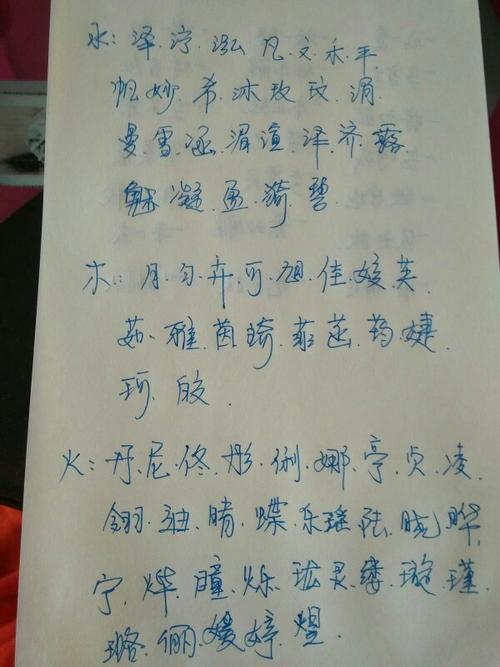 水：泽.泞.泓.凡.文.禾.平.
帆.妙.希.冰.玫.玟.涓.
曼.雪.涵.湄.渲.泽.济.露.
魅.凝.盈.漪.碧.
木：.月.勻.卉.可.旭.佳.媛.英
茹.雅.茵.琦.菲.菡.药.婕.
珂.皎.
火：丹.尼.佟.彤.俐.娜.亭.贞.凌
翎.迪.晴.蝶.乐.瑶.陆.晓.晔.
宁.烨.瞳.烁.玹.灵.缕.璇.瑾.
璐.俪.媛.婷.煜.